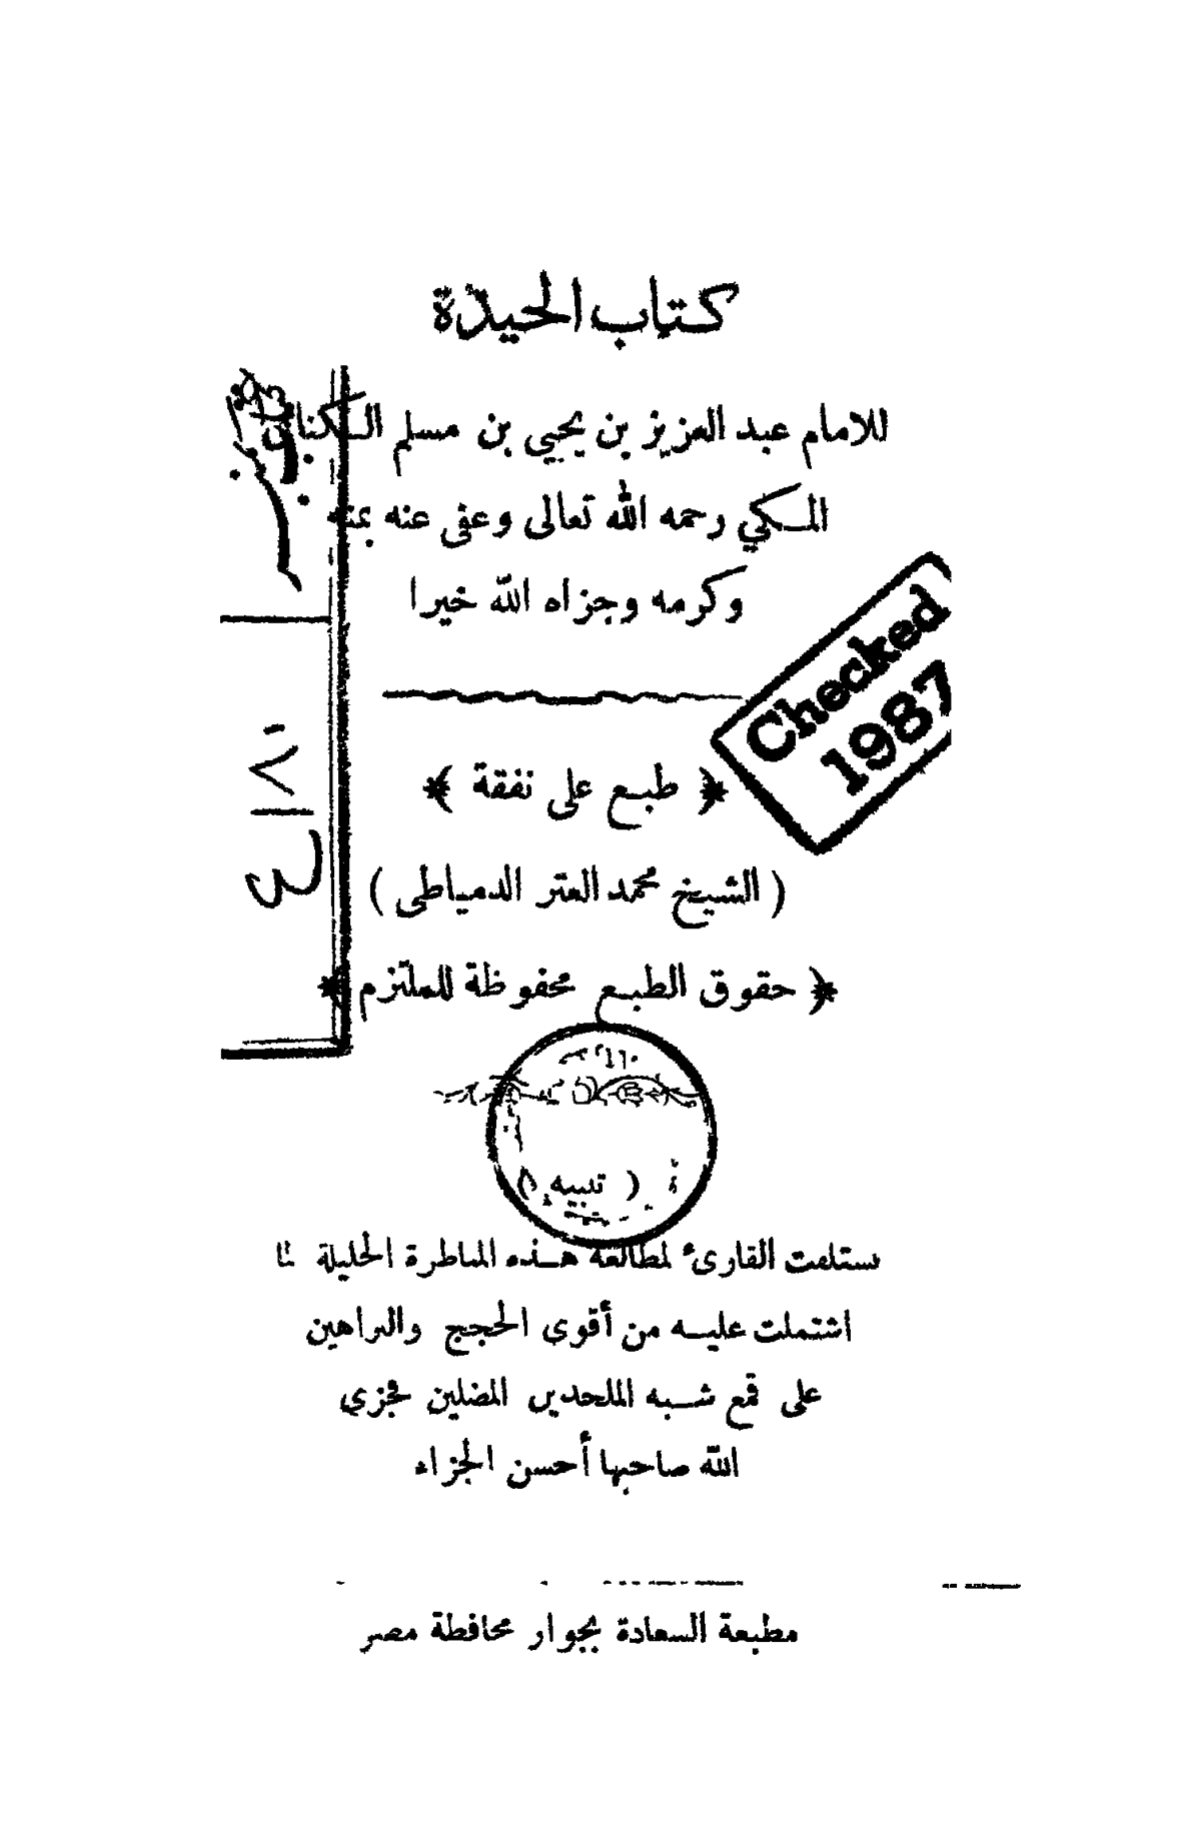 كتاب الحيدة
للامام عبد العزيز بن يحيى بن مسلم الكناني
المكي رحمه الله تعالى وعفى عنه بمنه
وكرمه وجزاه الله خيرا
Checked
1987
﴿ طبع على نفقة ﴾
( الشيخ محمد العتر الدمياطى )
﴿ حقوق الطبع محفوظة للملتزم ﴾
( تنبيه )
ستلفت القارئ لمطالعة هذه المناظرة الجليلة لما
اشتملت عليه من أقوى الحجج والبراهين
على قمع شبه الملحدين المضلين فجزي
الله صاحبها أحسن الجزاء
مطبعة السعادة بجوار محافظة مصر